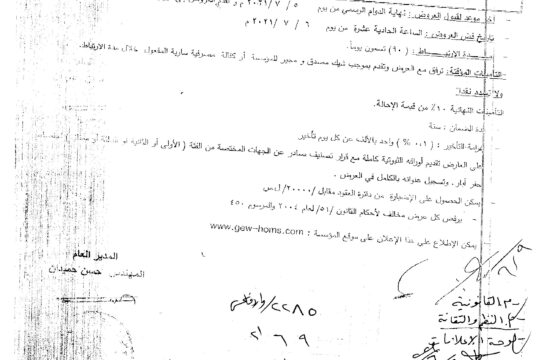 آخر موعد لقبول العروض : نهاية الدوام الرسمي من يوم ٥ / ٧ / ٢٠٢١ م
تاريخ فض العروض : الساعة الحادية عشرة من يوم ٦ / ٧ / ٢٠٢١ م
مدة الارتباط : (٩٠) تسعون يوماً.
التأمينات المؤقتة: ترفق مع العرض وتقدم بموجب شيك مصدق و مجير للمؤسسة أو كفالة مصرفية سارية المفعول خلال مدة الارتباط.
ولا تسدد نقداً
التأمينات النهائية ١٠٪ من قيمة الإحالة.
مدة الضمان : سنة
غرامة التأخير : (٠.١ ٪) واحد بالألف عن كل يوم تأخير
على العارض تقديم أوراقه الثبوتية كاملة مع قرار تصنيف صادر عن الجهات المختصة من الفئة ( الأولى أو الثانية
حفر آبار . وتسجيل عنوانه بالكامل في العرض .
يمكن الحصول على الإضبارة من دائرة العقود مقابل /٢٠٠٠٠/ ل.س
يرفض كل عرض مخالف لأحكام القانون /٥١/ لعام ٢٠٠٤ والمرسوم ٤٥٠
يمكن الإطلاع على هذا الإعلان على موقع المؤسسة : www.gew-homs.com
المدير العام
المهندس حسن حميدان
٢٢٨٥
٦ ٩
م القانونية
لوحة الاعلانات